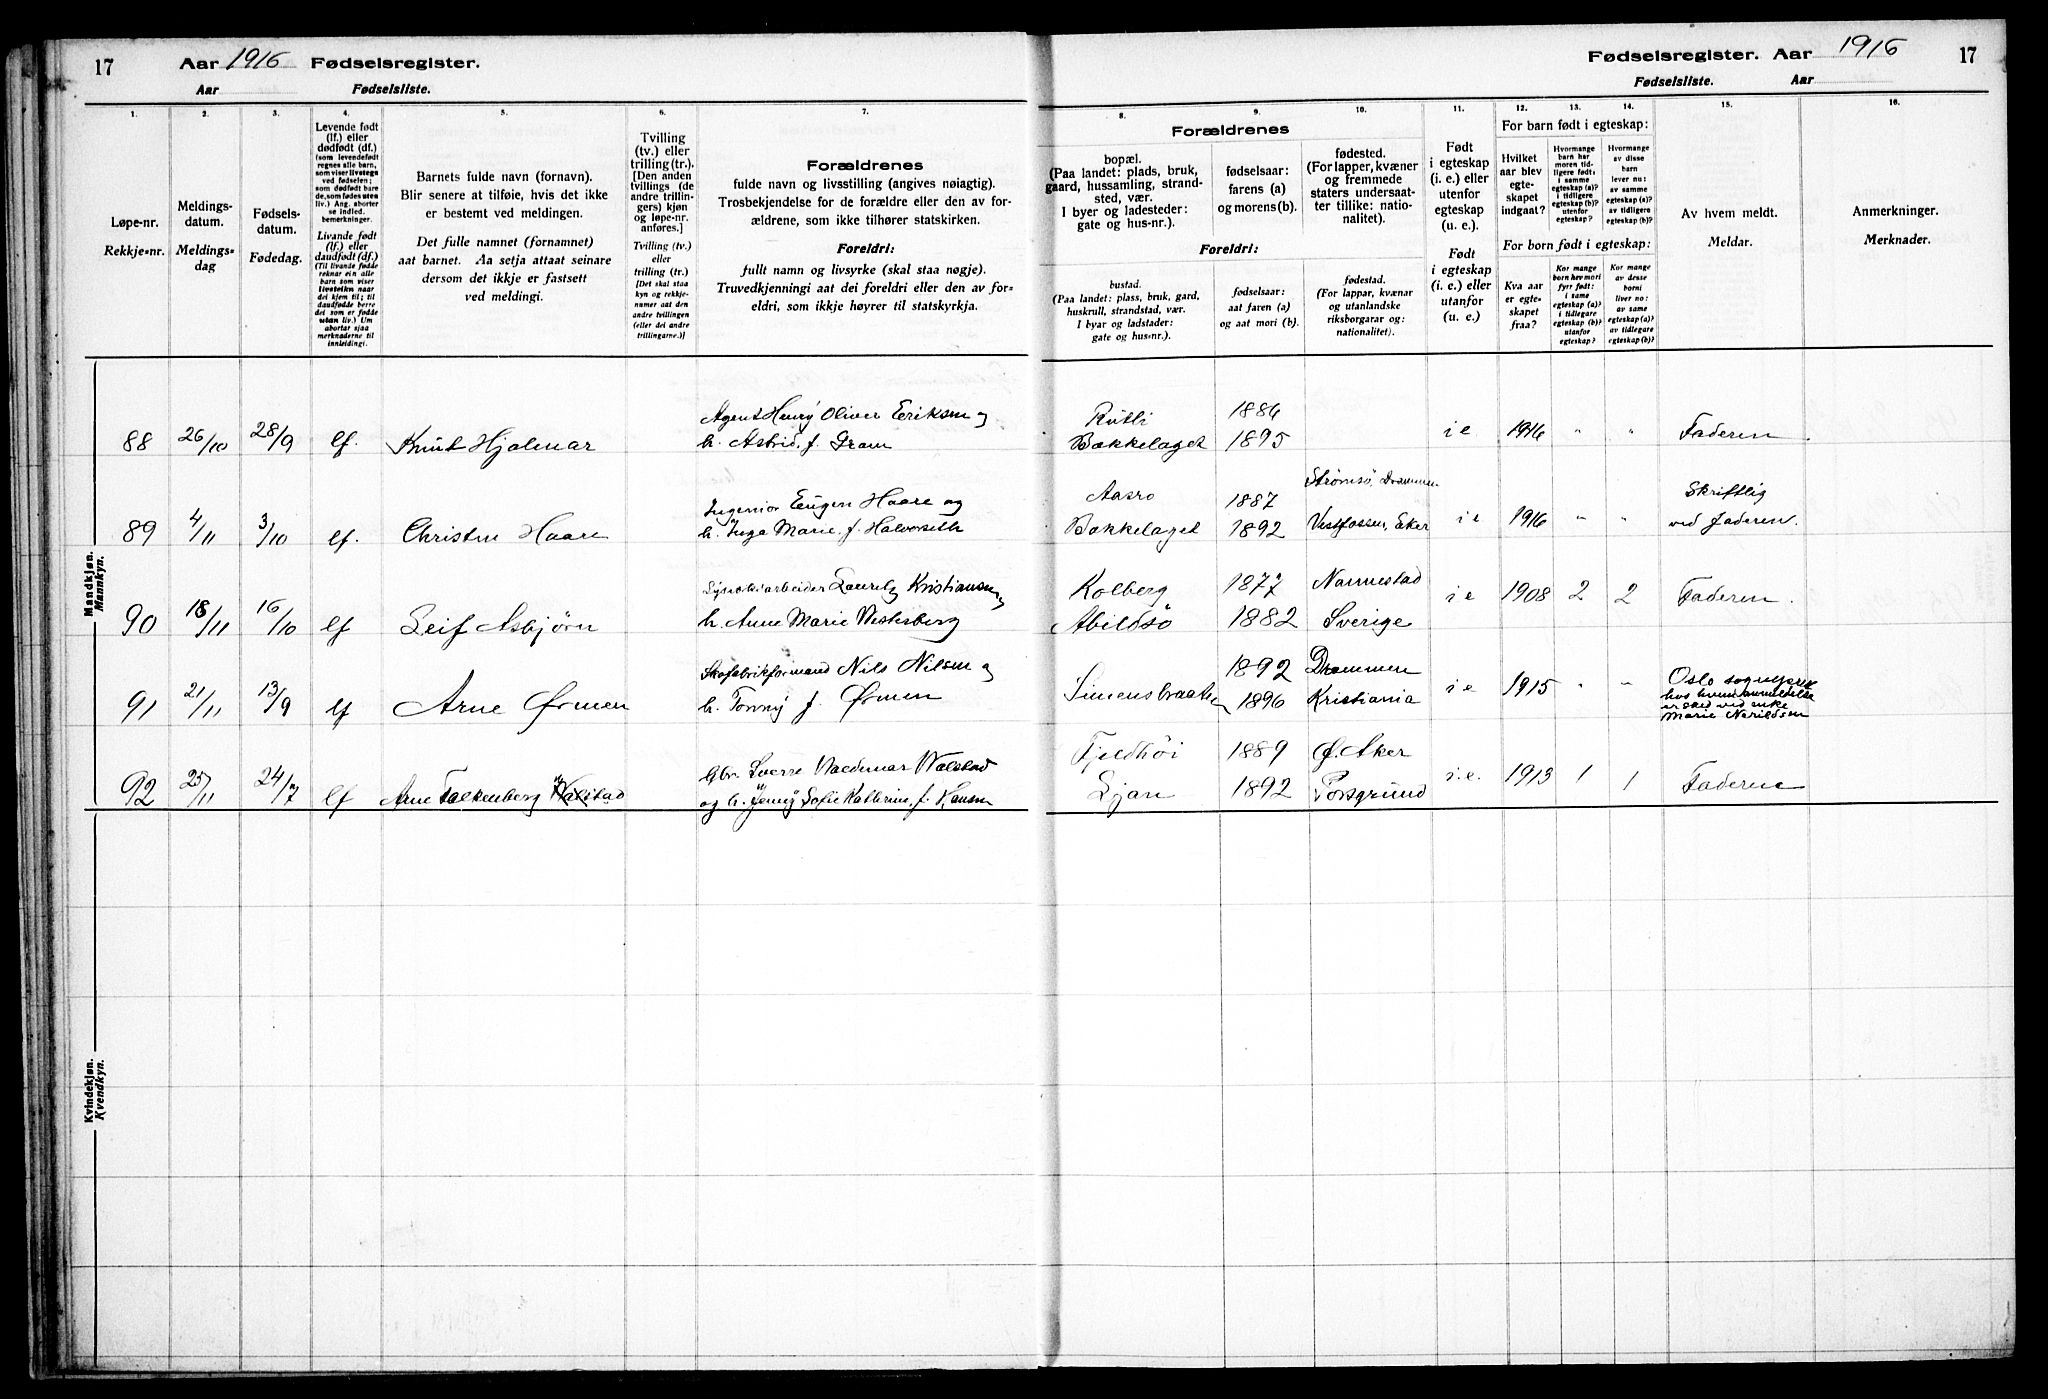 17 Aar 1916 Fødselsregister.
Aar Fødselsliste.
Fødselsregister. Aar 1916 17
Fødselsliste. Aar
1. 2. 3. 4. 5. 6. 7. 8. 9. 10. 11. 12. 13. 14. 15. 16.
Løpe-nr.
Rekkje-nr.
Meldings-
datum.
Meldings-
dag
Fødsels-
datum.
Fødedag.
Levende født
(lf.) eller
dødfødt (df.)
(som levendefødt
regnes alle barn,
som viser livstegn
ved fødselen;
som dødfødt bare
de, som fødes uten
liv.) Ang. aborter
se indled.
bemerkninger.
Livande født
(lf.) eller
daudfødt (df.)
(Til livande fødde
reknar ein alle
barn som viser
livsteikn naar
dei kjem til; til
daudfødde berre
dei som er fødde
utan liv.) Um
abortar sjaa
merknaderne til
innleidingi.
Barnets fulde navn (fornavn).
Blir senere at tilføie, hvis det ikke
er bestemt ved meldingen.
Det fulle namnet (fornamnet)
aat barnet. Aa setja attaat seinare
dersom det ikkje er fastsett
ved meldingi.
Tvilling
(tv.) eller
trilling (tr.).
[Den anden
tvillings (de
andre trillin-
gers) kjøn
og løpe-nr.
anføres.]
Tvilling (tv.)
eller
trilling (tr.)
[Det skal staa
kyn og rekkje-
numer aat den
andre tvillingen
(eller dei andre
trillingarne.)]
Forældrenes
fulde navn og livsstilling (angives nøiagtig).
Trosbekjendelse for de forældre eller den av for-
ældrene, som ikke tilhører statskirken.
Foreldri:
fullt namn og livsyrke (skal staa nøgje).
Truvedkjenningi aat dei foreldri eller den av for-
eldri, som ikkje høyrer til statskyrkja.
Forældrenes
bopæl.
(Paa landet: plads, bruk,
gaard, hussamling, strand-
sted, vær.
I byer og ladesteder:
gate og hus-nr.).
fødselsaar:
farens (a)
og morens (b).
fødested.
(For lapper, kvæner
og fremmede
staters undersaat-
ter tillike: natio-
nalitet).
Foreldri:
bustad.
(Paa landet: plass, bruk, gard,
huskrull, strandstad, vær.
I byar og ladstader:
gate og hus-nr.).
fødselsaar:
aat faren (a)
og aat mori (b).
fødestad.
(For lappar, kvænar
og utanlandske
riksborgarar og:
nationalitet).
Født
i egteskap
(i. e.) eller
utenfor
egteskap
(u. e.).
Født
i egteskap
(i. e.) eller
utanfor
egteskap
(u. e.).
For barn født i egteskap:
Hvilket
aar blev
egte-
skapet
indgaat?
Hvormange
barn har
moren tid-
ligere født:
i samme
egteskap (a)?
i tidligere
egteskap (b)?
utenfor
egteskap?
Hvormange
av disse
barn
lever nu:
av samme
egteskap (a)?
av tidligere
egteskap (b)?
For born født i egteskap:
Kva aar
er egte-
skapet
fraa?
Kor mange
born hev mori
fyrr født:
i same
egteskap (a)?
i tidlegare
egteskap (b)?
utanfor
egteskap?
Kor mange
av desse
borni
liver no:
av same
egteskap (a)?
av tidlegare
egteskap (b)?
Av hvem meldt.
Meldar.
Anmerkninger.
Merknader.
Mandkjøn.
Mannkyn.
Agent Henry Oliver Eriksen og Rütli 1886
88 26/10 28/9 lf. Knut Hjalmar h. Astrid, f. Gram Bækkelaget 1895 i e 1916 " " Faderen.
Ingeniør Eugen Haare og Aasro 1887 Strømsö, Drammen Skriftlig
89 4/11 3/10 lf. Christen Haare h. Inga Marie, f. Halvorseth Bækkelaget 1892 Vestfossen, Eker i e 1916 " " ved faderen.
Kristiansen Kolberg 1877 Nannestad
90 18/11 16/10 lf Leif Asbjörn h. Anne Marie Westerberg Abildsö 1882 Sverige i e 1908 2 2 Faderen.
Skofabrikformand Nils Nilsen og 1892 Drammen
91 21/11 13/9 lf Arne Ørmen h. f. Ørmen Simensbraaten 1896 Kristiania i e 1915 " " Oslo sogneprest
hos hvem anmeldelse
er sked ved enke
Marie
Sverre Waldemar Walstad Fjeldhöi 1889 Ø. Aker
92 25/11 24/7 lf Arne Falkenberg Walstad og h. Jenny Sofie Kathrine, f. Hansen Ljan 1892 Porsgrund i. e. 1913 1 1 Faderen
Kvindekjøn.
Kvendkyn.